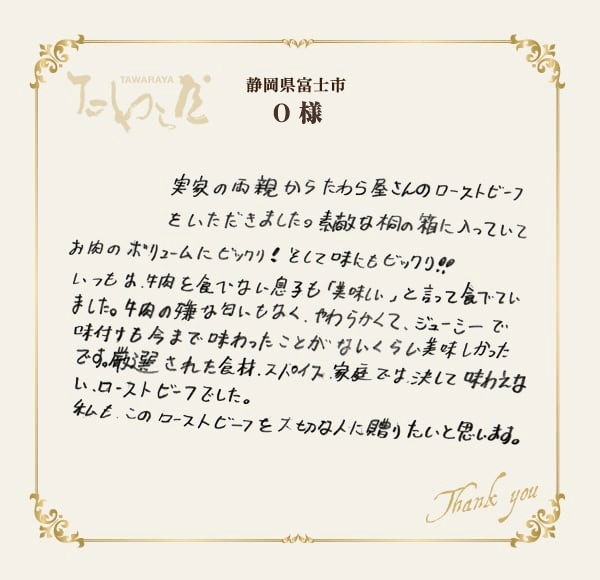 TAWARAYA
たわら屋
静岡県富士市
O 様
実家の両親からたわら屋さんのローストビーフ
をいただきました。素敵な桐の箱に入っていて
お肉のボリュームにビックリ!そして味にもビックリ!!
いつもは、牛肉を食べない息子も「美味しい」と言って食べてい
ました。牛肉の嫌な匂いもなく、やわらかくて、ジューシーで
味付けも今まで味わったことがないくらい美味しかった
です。厳選された食材、スパイス、家庭では、決して味わえな
い、ローストビーフでした。
私も、このローストビーフを大切な人に贈りたいと思います。
Thank you